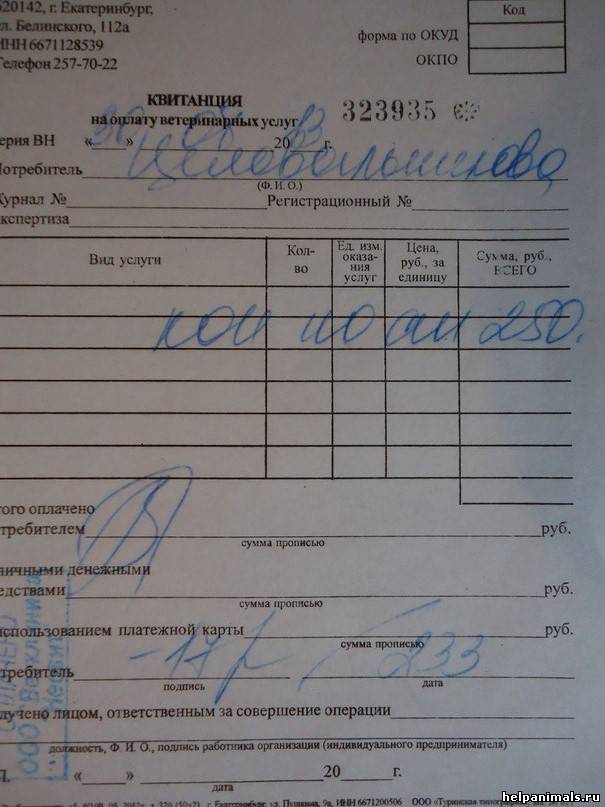 620142, г. Екатеринбург,
ул. Белинского, 112а
ИНН 6671128539
Телефон 257-70-22
Код
форма по ОКУД
ОКПО
КВИТАНЦИЯ
на оплату ветеринарных услуг
323935
серия ВН « 30 » 20 13 г.
Потребитель
(Ф. И. О.)
Журнал № Регистрационный №
экспертиза
Вид услуги Кол-во Ед. изм. оказания услуг Цена, руб., за единицу Сумма, руб., ВСЕГО
250.
того оплачено
требителем руб.
сумма прописью
личными денежными
едствами руб.
сумма прописью
использованием платежной карты руб.
сумма прописью
требитель -17 р / 233
подпись дата
лучено лицом, ответственным за совершение операции
должность, Ф. И. О., подпись работника организации (индивидуального предпринимателя)
« » 20 г.
дата
г. Екатеринбург, ул. Пушкина, 9а, ИНН 6671200506 ООО «Туринская типог
helpanimals.ru